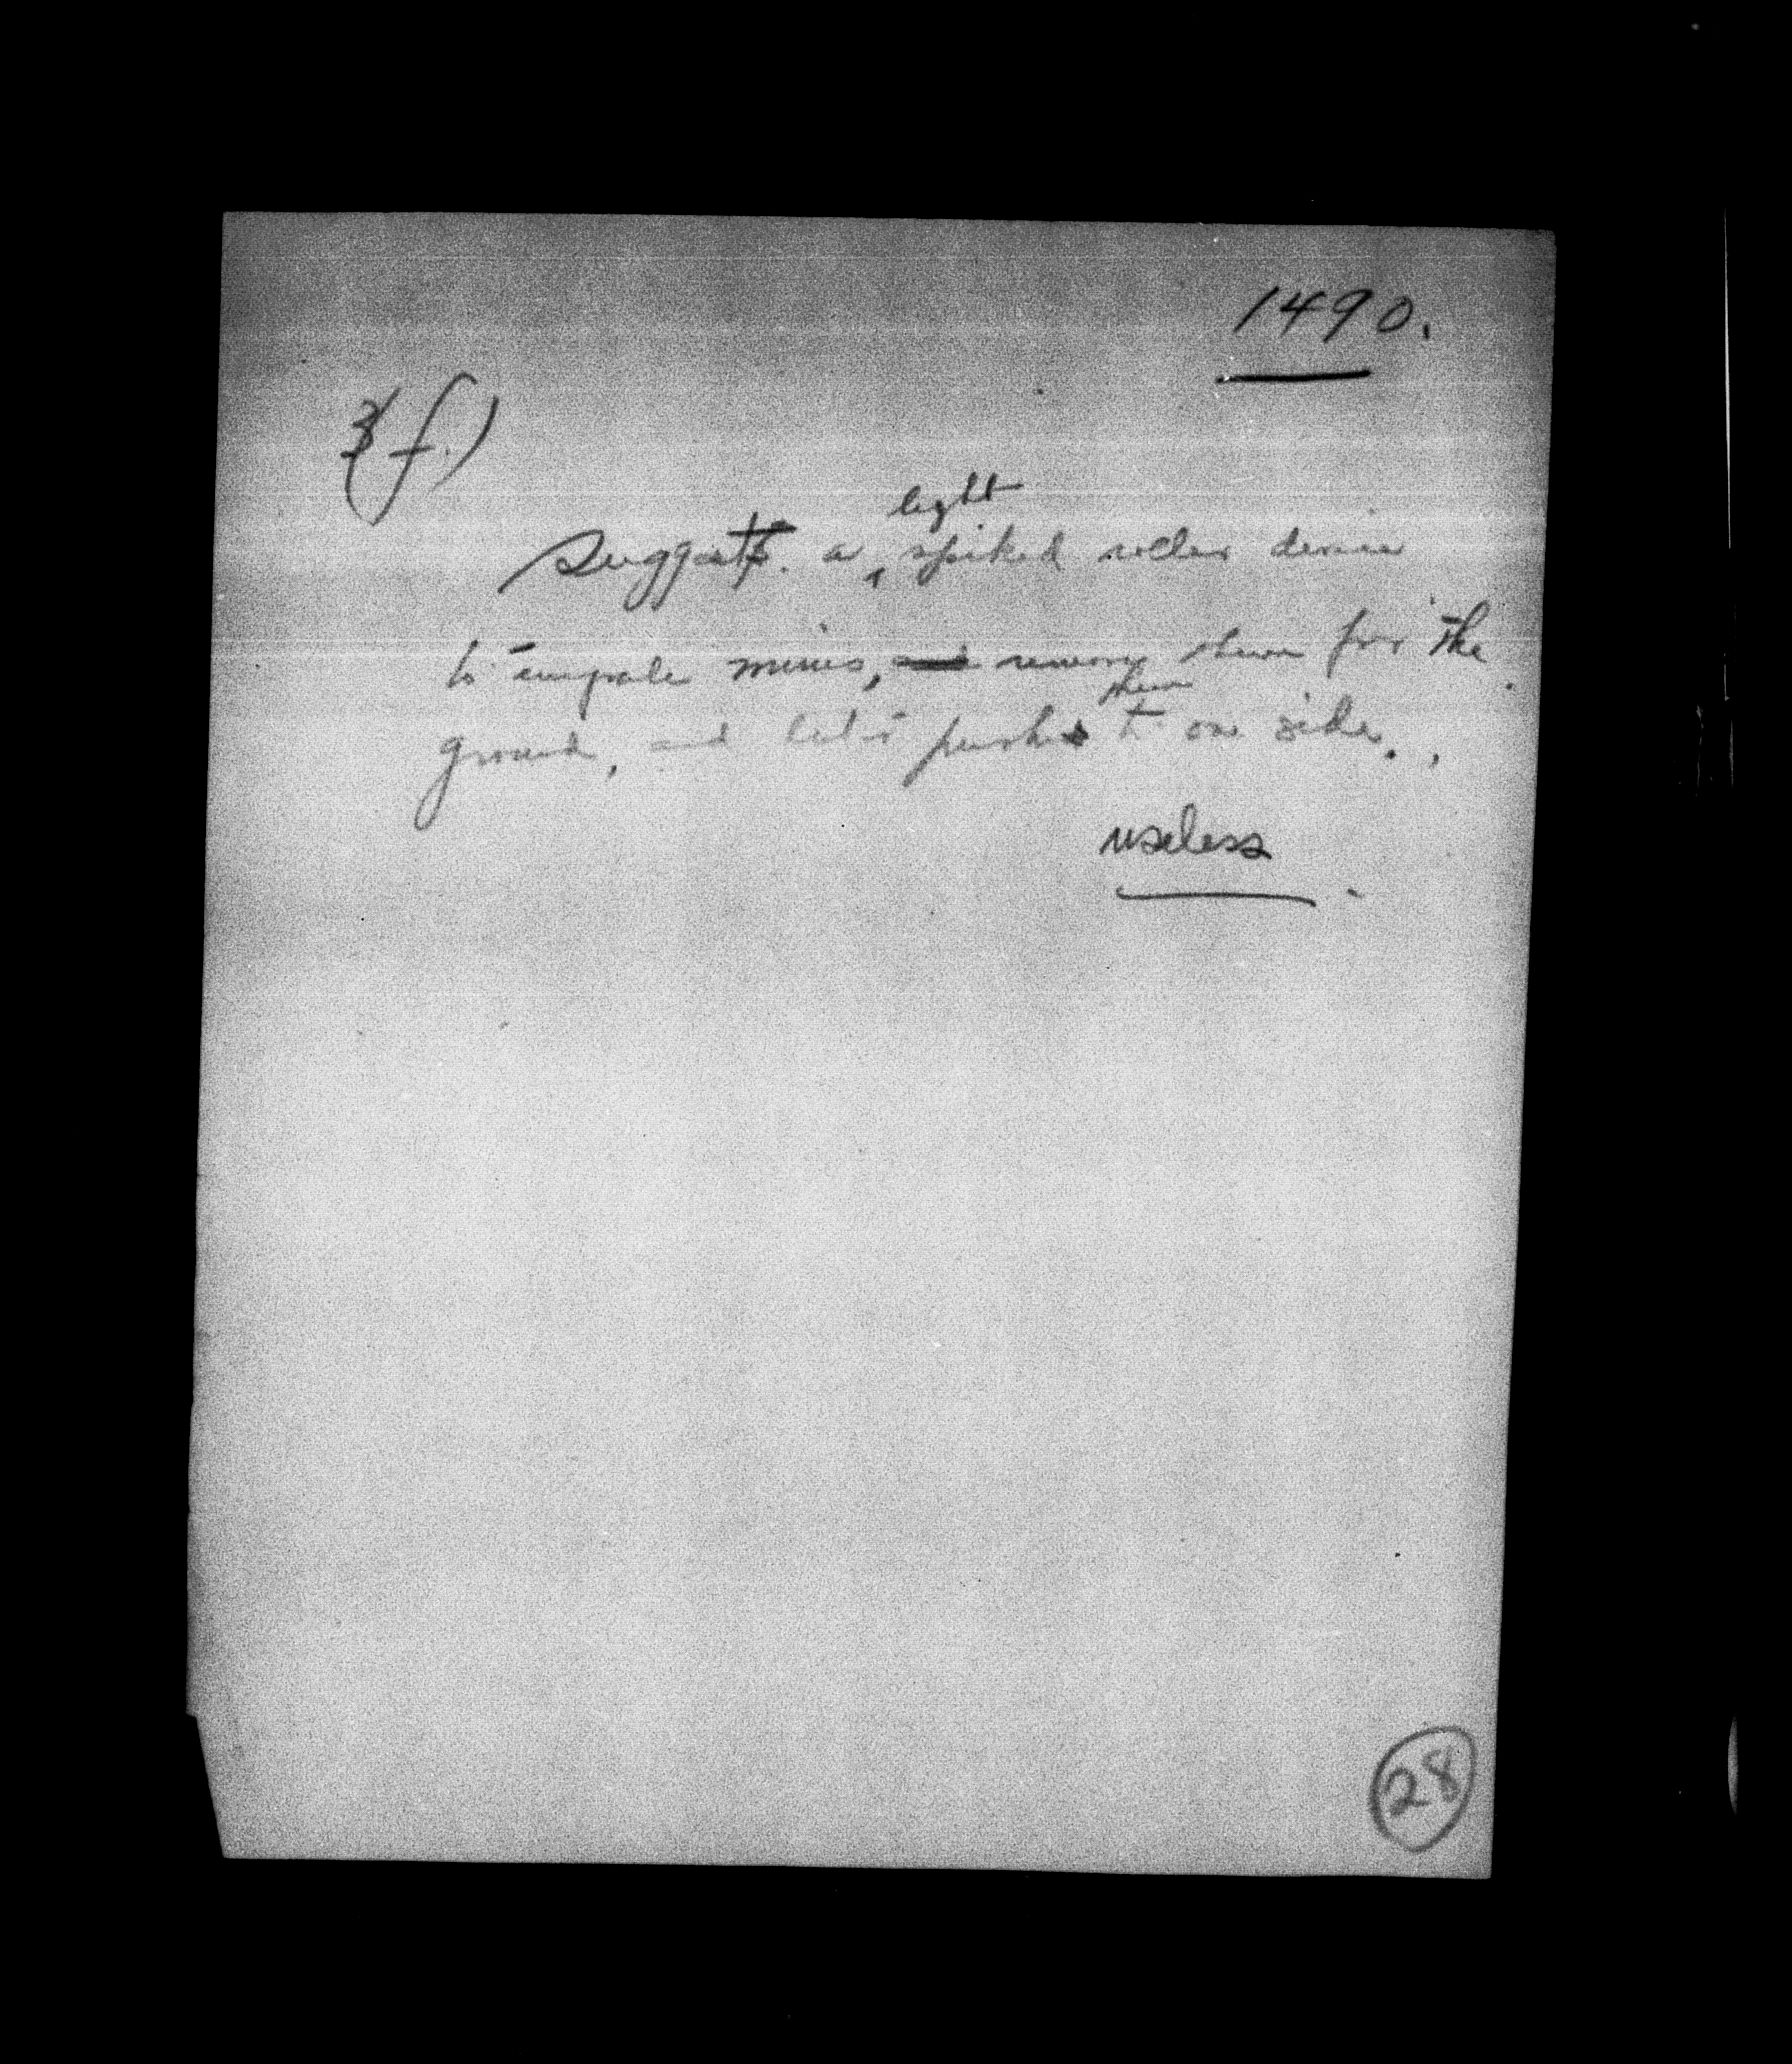 1490.
3(f.)
light
Suggests. a spiked roller device
to impale mines, remove them from the
them
ground, and push to one side.
useless
28